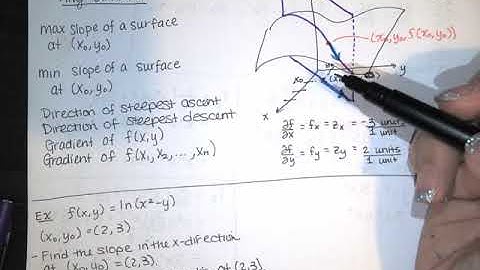 max slope of a surface
at (x₀, y₀)
min slope of a surface
at (x₀, y₀)
Direction of steepest ascent
Direction of steepest descent
Gradient of f(x,y)
Gradient of f(x₁, x₂, ..., xₙ)
(x₀, y₀, f(x₀, y₀))
y₀
y
x₀
x
∂f/∂x = fx = zx = -3 units / 1 unit
∂f/∂y = fy = zy = 2 units / 1 unit
Ex f(x,y) = ln(x²-y)
(x₀, y₀) = (2, 3)
- Find the slope in the x-direction
at (x₀, y₀) = (2, 3).
at (2, 3)